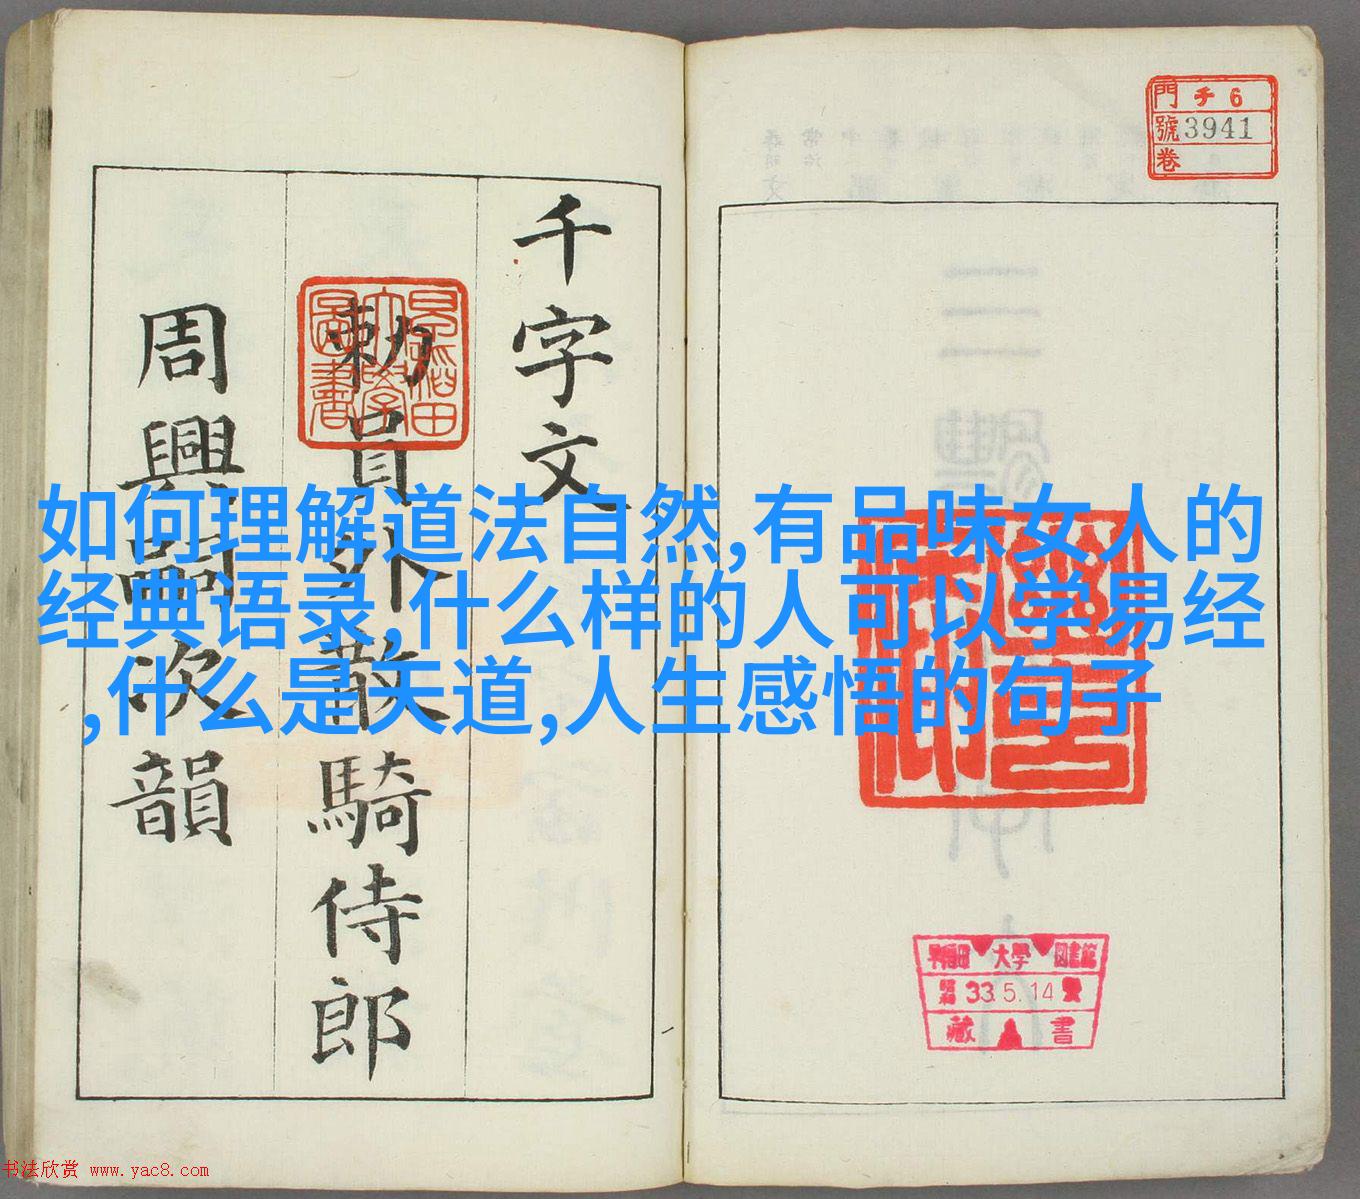 門 チ 6
號 3941
卷
千字文
勅員外散騎侍郎
周興嗣次韻
早稲田大學圖書
如何理解道法自然,有品味女人的
经典语录,什么样的人可以学易经
,什么是天道,人生感悟的句子
早稲田 大學 図書館
33.5.14
藏 書
书法欣赏 www.yac8.com